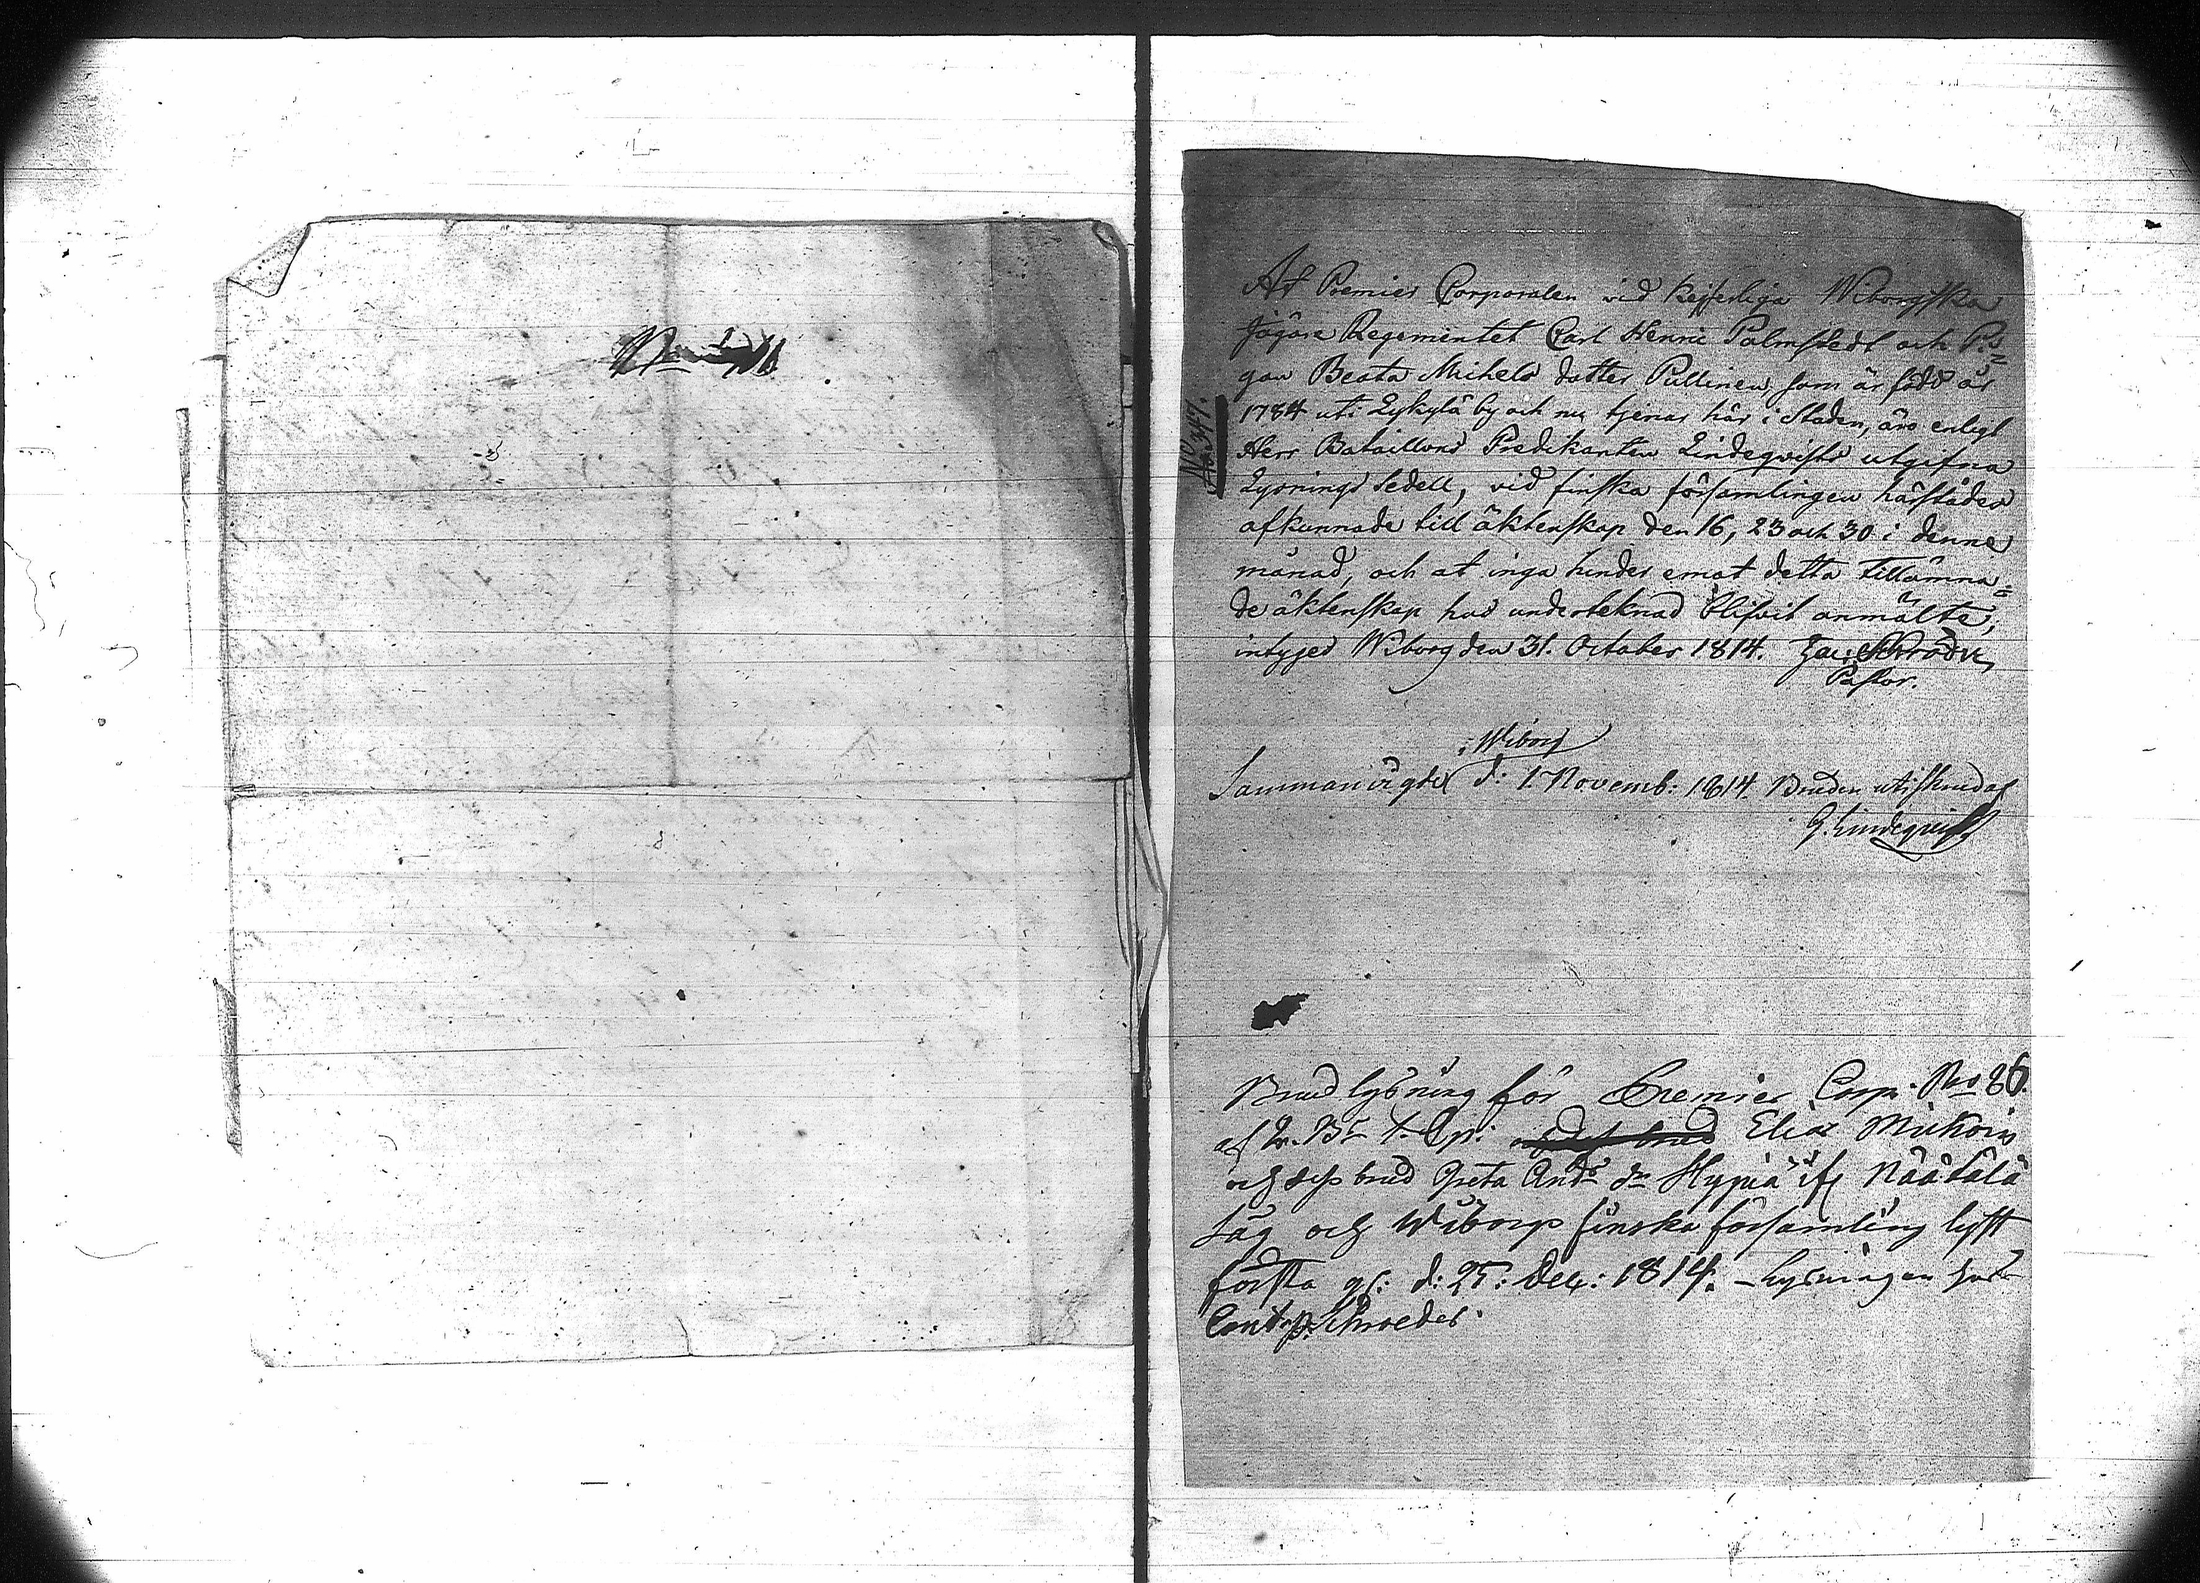 At Premier Corporalen vid Kejserliga Wiborgska
Jägare Regementet Carl Henric Palmstedt och Pi=
gan Beata Michels dotter Pullinen, som är född år
1784 uti Kykylä by och nu tjenar här i Staden, äro enligt
Herr Bataillons Predikanten Lindeqvists utgifna
Lysnings Sedell, vid finska församlingen härstädes
afkunnade till äktenskap den 16, 23 och 30 i denne
månad, och at inga hinder emot detta tillämna=
de äktenskap hos undertecknad blifvit anmälte,
intyges Wiborg den 31. October 1814. Zac: Schröder,
Pastor.
No 347.
i Wiborg
Sammanvigde d: 1. Novemb: 1814. Bruden utiskrudad
G. Lindeqvist
Brudlysning för Premier Corp. No 86.
af Elias Mickoin
och dess brud Greta Ands dr Hypiä if Näätälä
Såg och Wiborgs finska församling lyst
första gf: d: 25: Dec: 1814. – Lysningen hos
Cont.p. Schroeder.